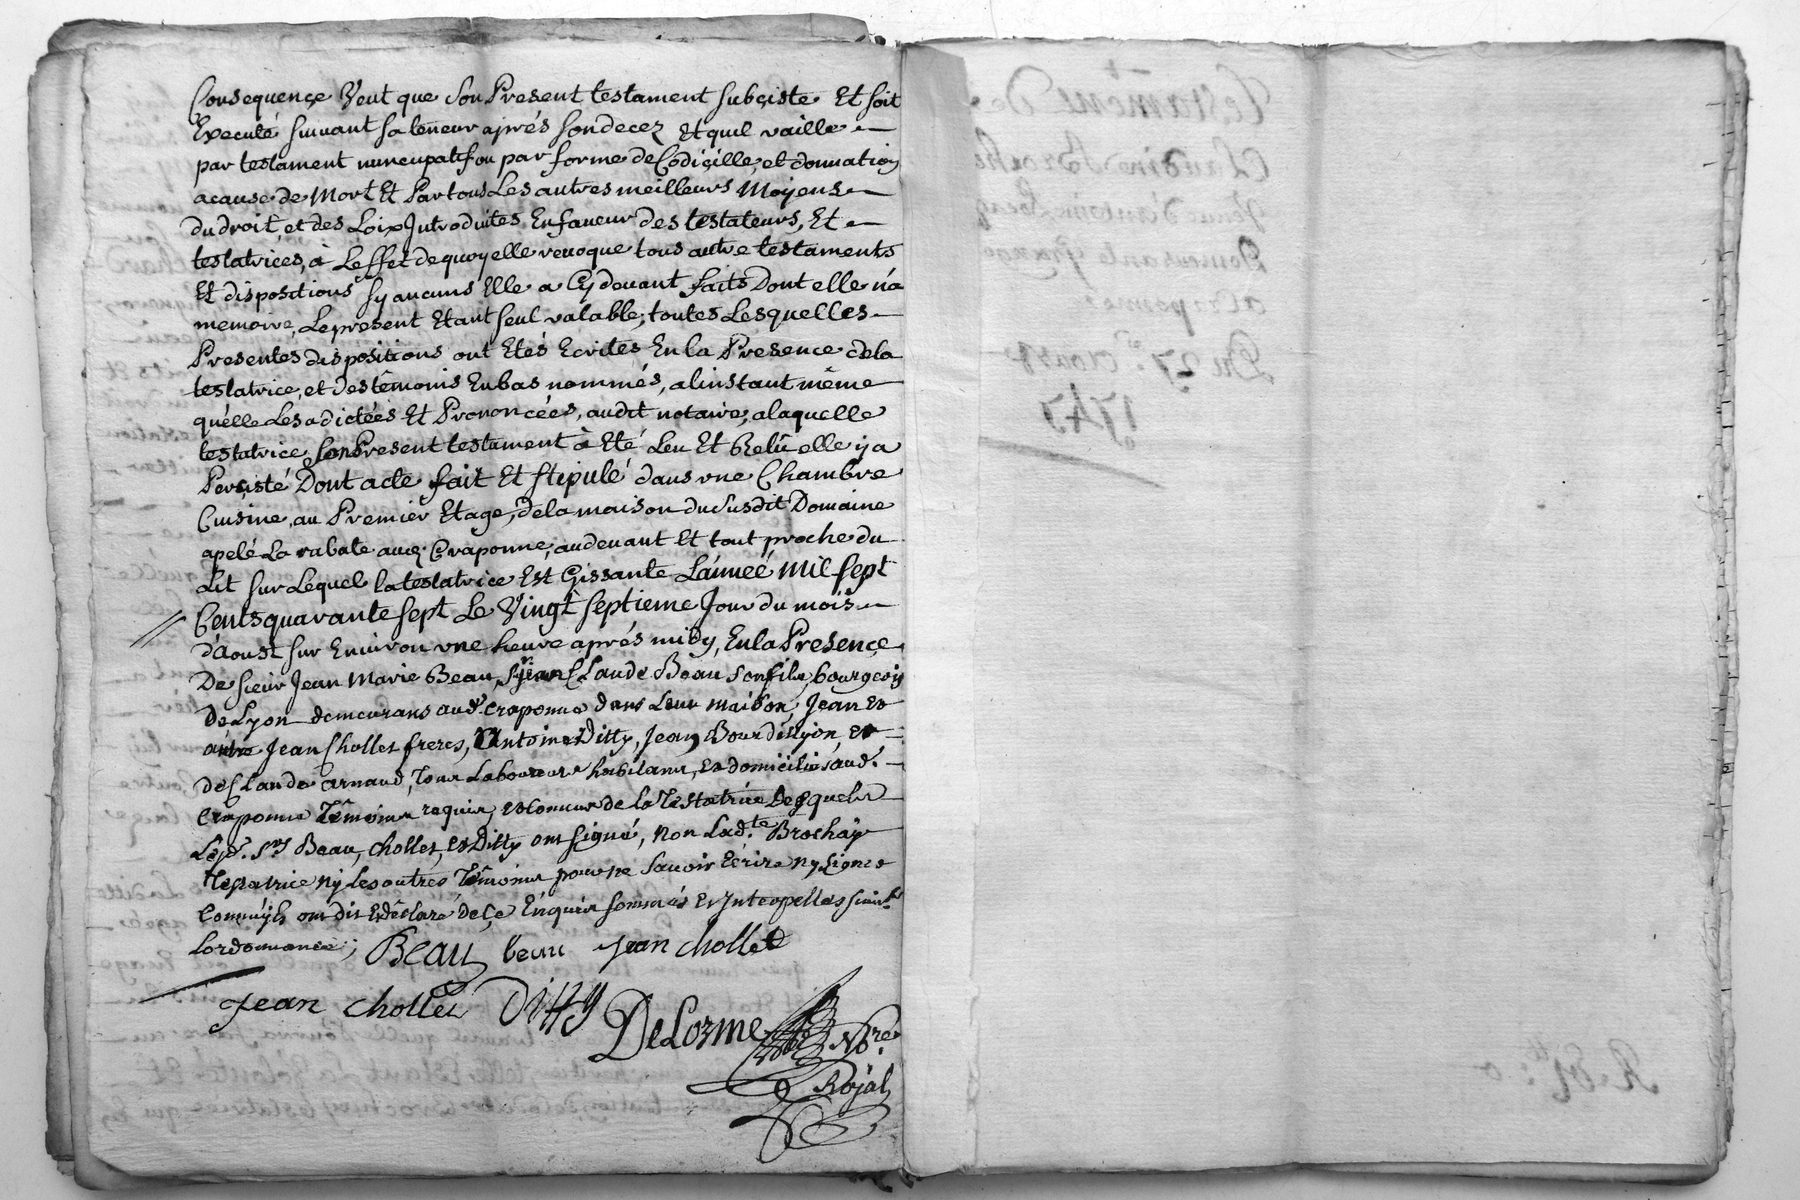 Consequençe Veut que Son Present testament subçiste Et soit
Executé suivant sa teneur aprés son decez Et quil vaille
par testament nuncupatif ou par forme de Codiçille, et donnation
acause de Mort Et Par tous Les autres meilleurs Moyens
du droit et des Loix Introduites En faveur des testateurs, Et
testatrices, à Leffet de quoy elle revoque tous autre testaments
Et dispositions sy aucuns Elle a Cy devant faits Dont elle n'a
memoire, Le present Etant seul valable; toutes Lesquelles
Presentes dispositions ont Etés Ecrites En la Presence dela
testatrice, et des témonis En bas nommés, alinstant même
quélle Les a dictées Et Prononcées, audit notaire, alaquelle
testatrice, Son Present testament à Eté Leu Et Relû elle y a
Perçisté Dont acte fait Et stipulé dans vne Chambre
Cuisine, au Premiér Etage, dela maison du Susdit Domaine
apelé La rabate audt. Craponne, au devant Et tout proche du
Lit sur Lequel la testatrice Est Gissante L'année Mil sept
Cents quarante sept Le Vingt septieme Jour du mois
d'aoust sur Environ vne heure aprés midy, En la Presençe
De sieur Jean Marie Beau, Sr. jean Claude Beau son fils, bourgeois
de Lyon demeurans aud. craponne dans Leur maison, Jean et
autre Jean Chollet freres, Antoine Ditty, Jean Bourdillyon et
de Claude arnaud, Tous Laboureurs habitans, et domiciliés aud.
craponne Témoins requis, et Connus de la Testatrice Desquels
Lesd. Srs. Beau, chollet, et Ditty ont signé, non Lad.te Brochay
Testatrice ny Les autres Témoins pour ne Savoir Ecrire ny signer
comm'ils ont dit Et déclaré de Ce Enquis sommés Et Interpellés suivt.
Lordonnance; Beau beau jean chollet
jean chollet Ditty DeLorme Nore.
Royal